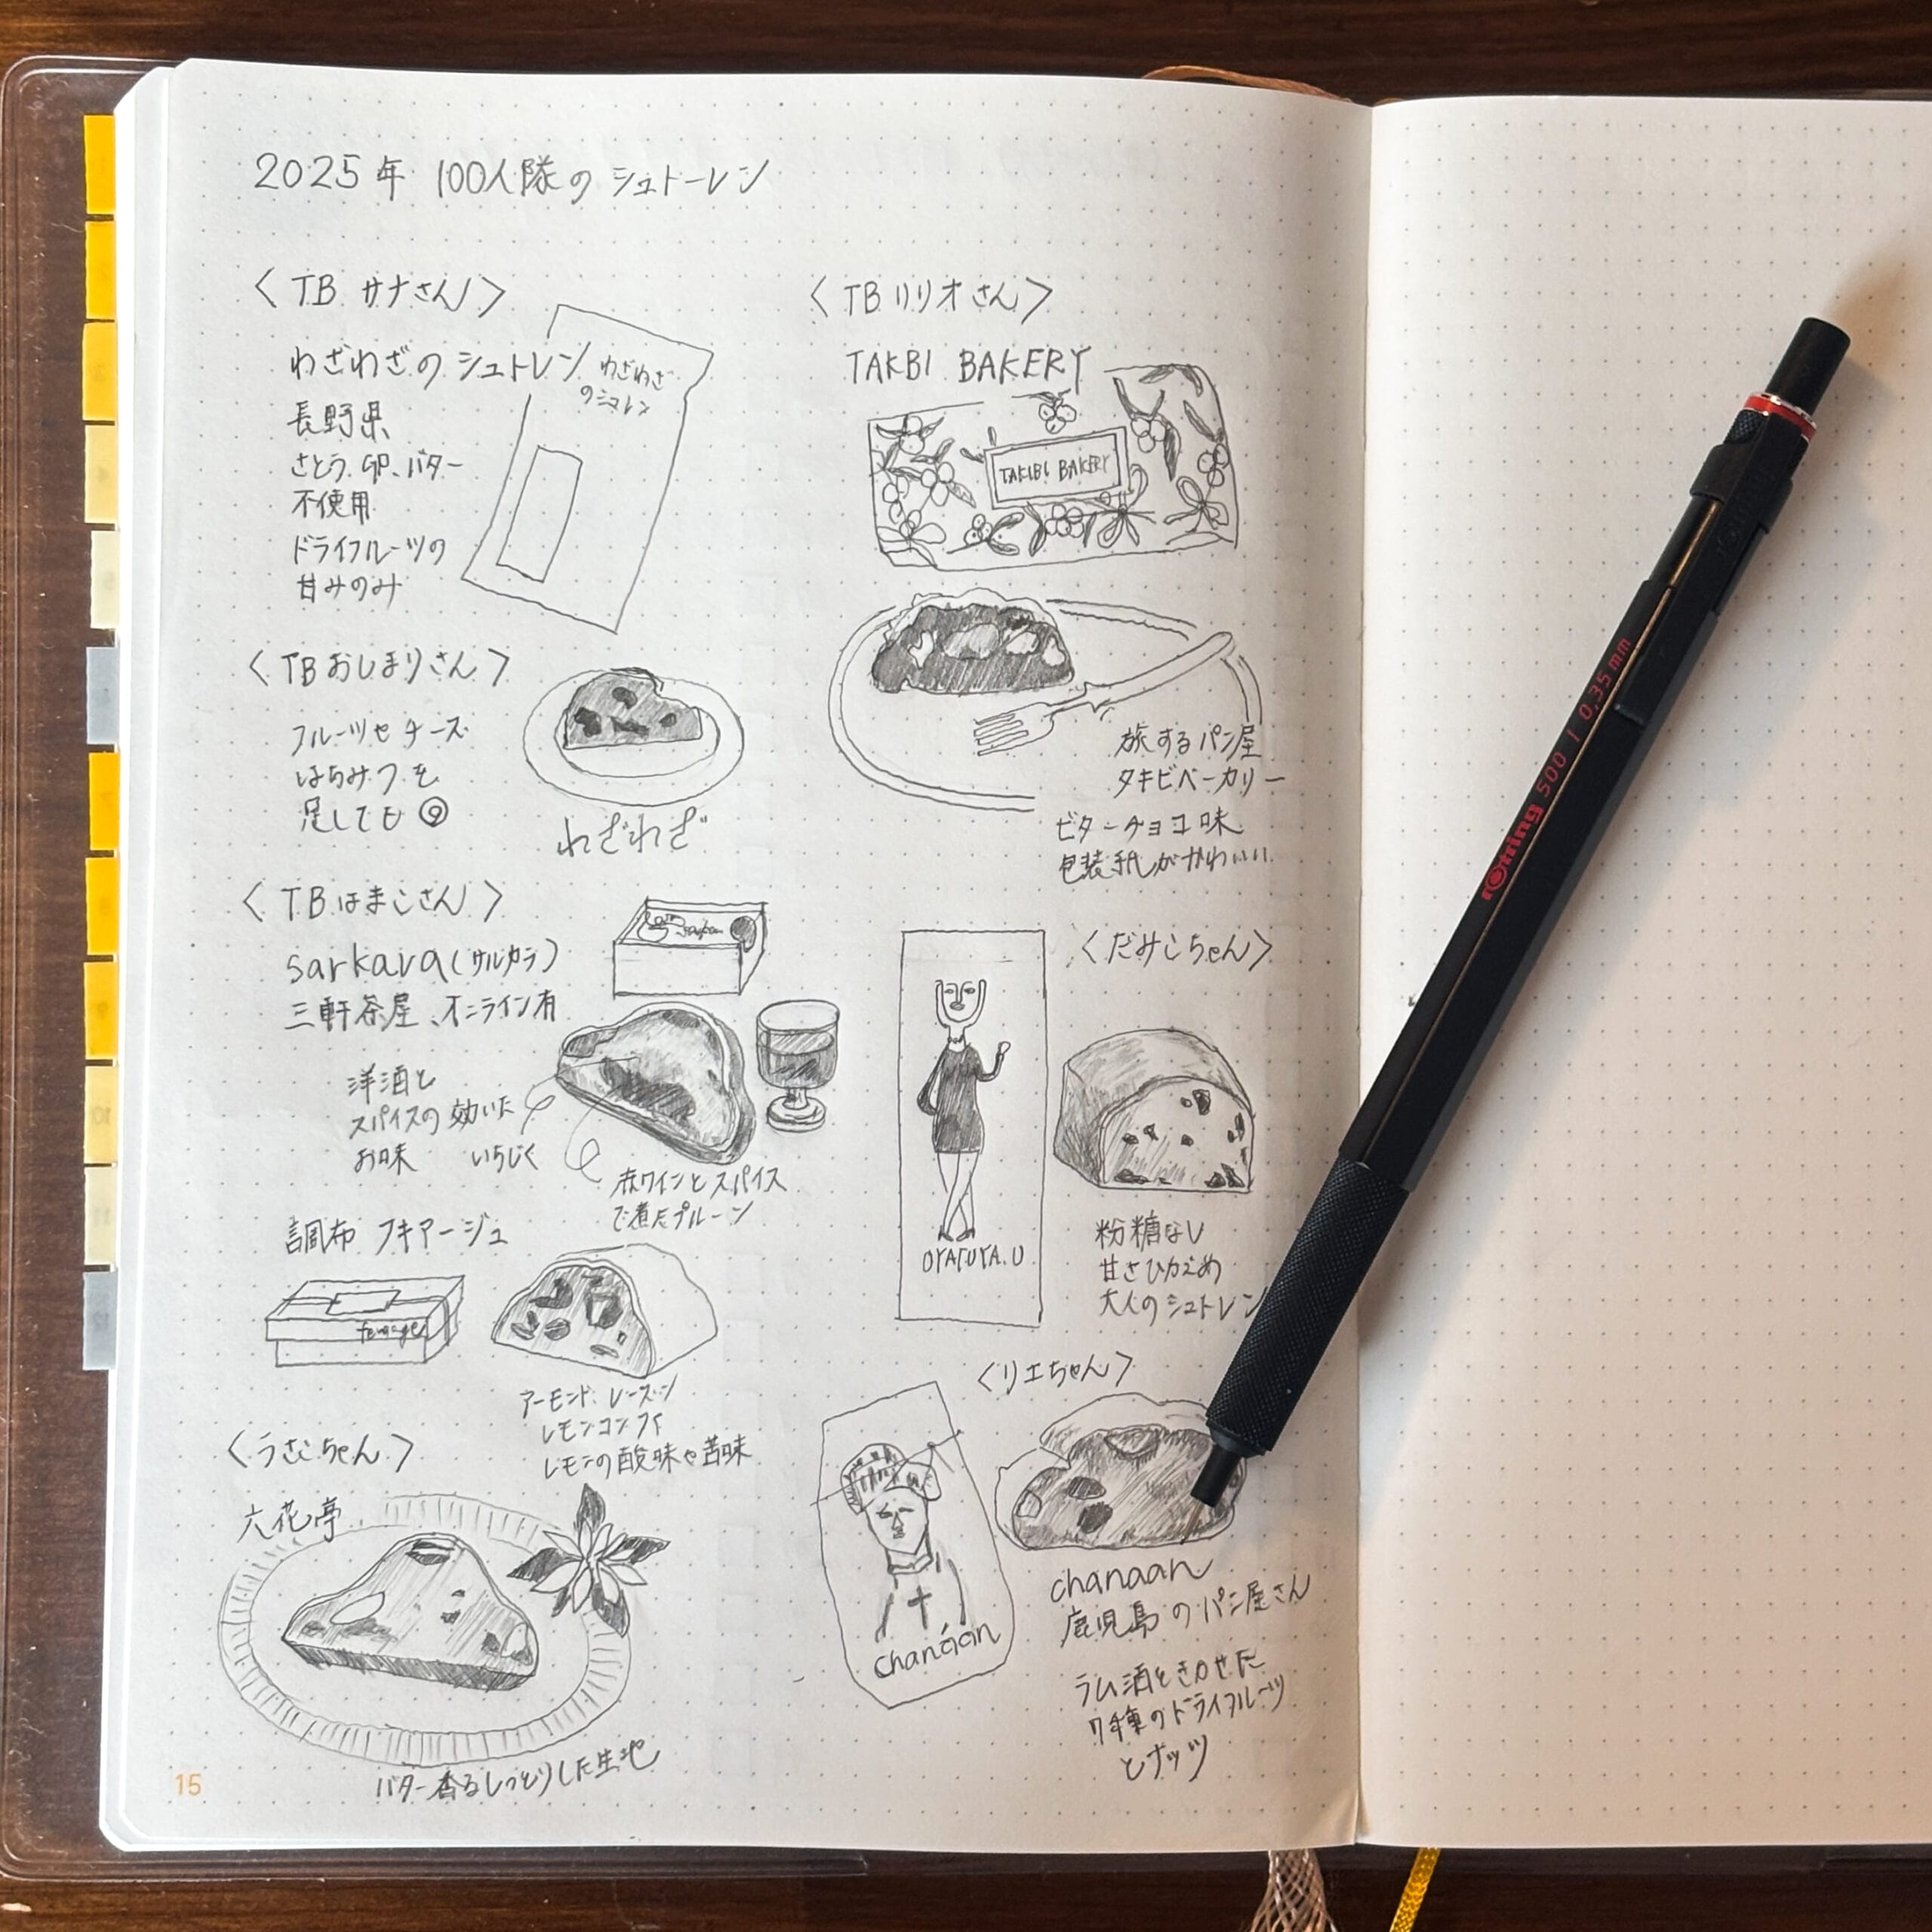 2025年 100人隊のシュトーレン
〈TB サナさん〉
わざわざのシュトレン
長野県
さとう、卵、バター
不使用
ドライフルーツの
甘みのみ
わざわざ
のシュトレン
〈TB おしまりさん〉
フルーツやチーズ
はちみつを
足しても◎
わざわざ
〈TB はまこさん〉
sarkara(サルカラ)
三軒茶屋、オンライン有
洋酒と
スパイスの効いた
お味
いちじく
赤ワインとスパイス
で煮たプルーン
調布 フキアージュ
アーモンド、レーズン
レモンコンフィ
レモンの酸味や苦味
〈うさこちゃん〉
六花亭
バター香るしっとりした生地
15
〈TB リリオさん〉
TAKBI BAKERY
TAKIBI BAKERY
旅するパン屋
タキビベーカリー
ビターチョコ味
包装紙がかわいい
〈だみこちゃん〉
OYATUYA.U
粉糖なし
甘さひかえめ
大人のシュトレン
〈リエちゃん〉
chanáan
chanaan
鹿児島のパン屋さん
ラム酒をきかせた
7種のドライフルーツ
とナッツ
rotring 500 | 0,35 mm